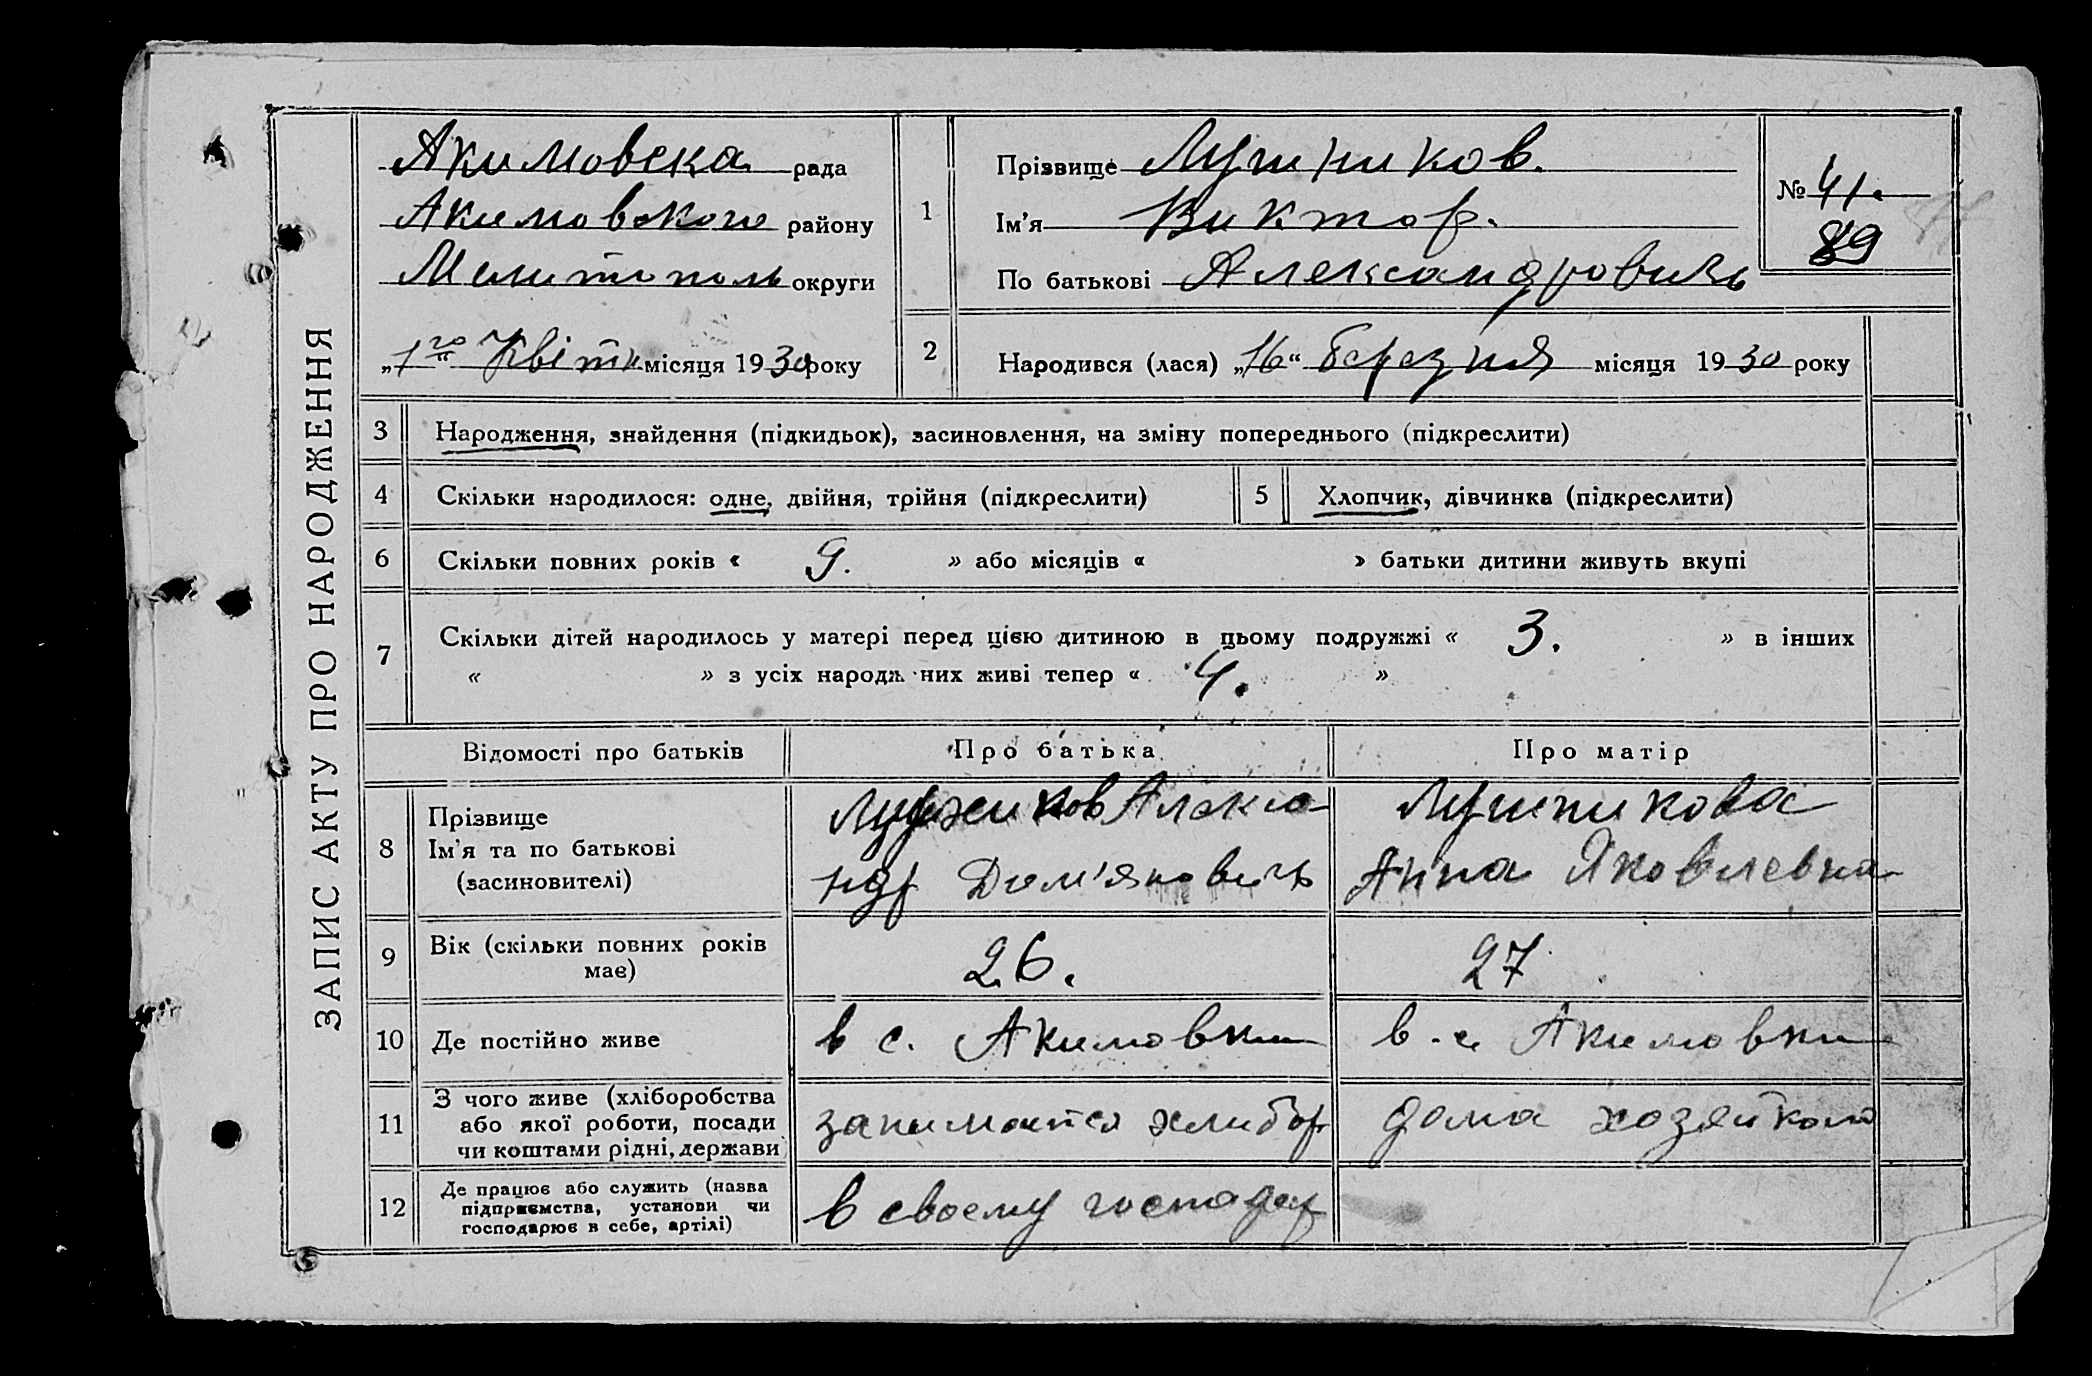 ЗАПИС АКТУ ПРО НАРОДЖЕННЯ
Акимовска рада
Акимовского района району
Мелитополь округи
„1го“ Квітн місяця 1930 року
1
Прізвище Лушников.
Ім’я Виктор.
По батькові Александровичь
№ 41.
89
2
Народився (лася) „16“ березня місяця 1930 року
3 Народження, знайдення (підкидьок), засиновлення, на зміну попереднього (підкреслити)
4 Скільки народилося: одне, двійня, трійня (підкреслити)
5 Хлопчик, дівчинка (підкреслити)
6 Скільки повних років « 9. » або місяців « » батьки дитини живуть вкупі
7 Скільки дітей народилось у матері перед цією дитиною в цьому подружжі « 3. » в інших
« » з усіх народж них живі тепер « 4. »
Відомості про батьків Про батька Про матір
8
Прізвище
Ім’я та по батькові
(засиновителі)
Лушников Алекса
ндр Дем’яновичь
Лушникова
Анна Яковлевна
9
Вік (скільки повних років
має)
26.
27
10 Де постійно живе
в с. Акимовки
в с. Акимовки
11
З чого живе (хліборобства
або якої роботи, посади
чи коштами рідні, держави
занимается хлибор
дома хозяйкой
12
Де працює або служить (назва
підприємства, установи чи
господарює в себе, артілі)
в своему господар